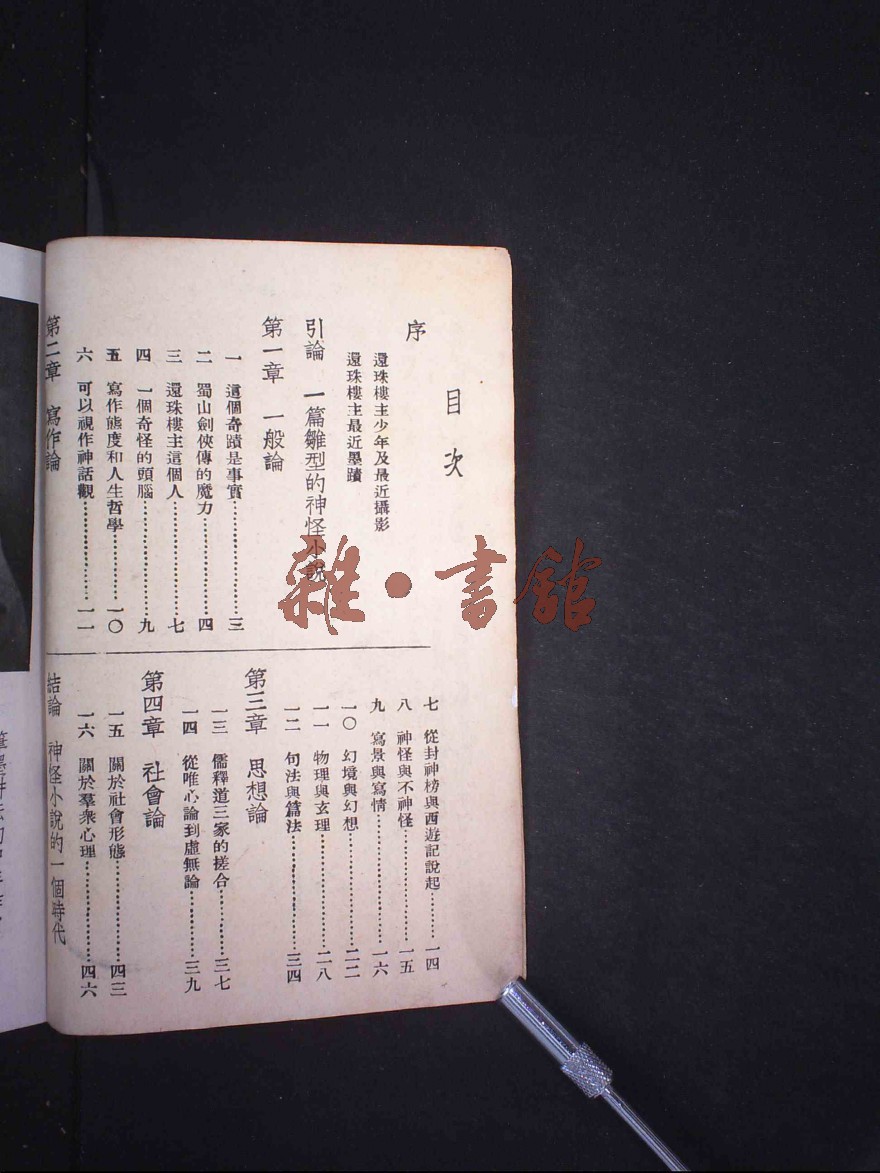 目次
序
還珠樓主少年及最近攝影
還珠樓主最近墨蹟
引論 一篇雛型的神怪小說
第一章 一般論
一 這個奇蹟是事實…………三
二 蜀山劍俠傳的魔力…………四
三 還珠樓主這個人…………七
四 一個奇怪的頭腦…………九
五 寫作態度和人生哲學…………一〇
六 可以視作神話觀…………一一
第二章 寫作論
七 從封神榜與西遊記說起…………一四
八 神怪與不神怪…………一五
九 寫景與寫情…………一六
一〇 幻境與幻想…………二二
一一 物理與玄理…………二八
一二 句法與篇法…………三四
第三章 思想論
一三 儒釋道三家的搓合…………三七
一四 從唯心論到虛無論…………三九
第四章 社會論
一五 關於社會形態…………四三
一六 關於羣衆心理…………四六
結論 神怪小說的一個時代
雜·書館